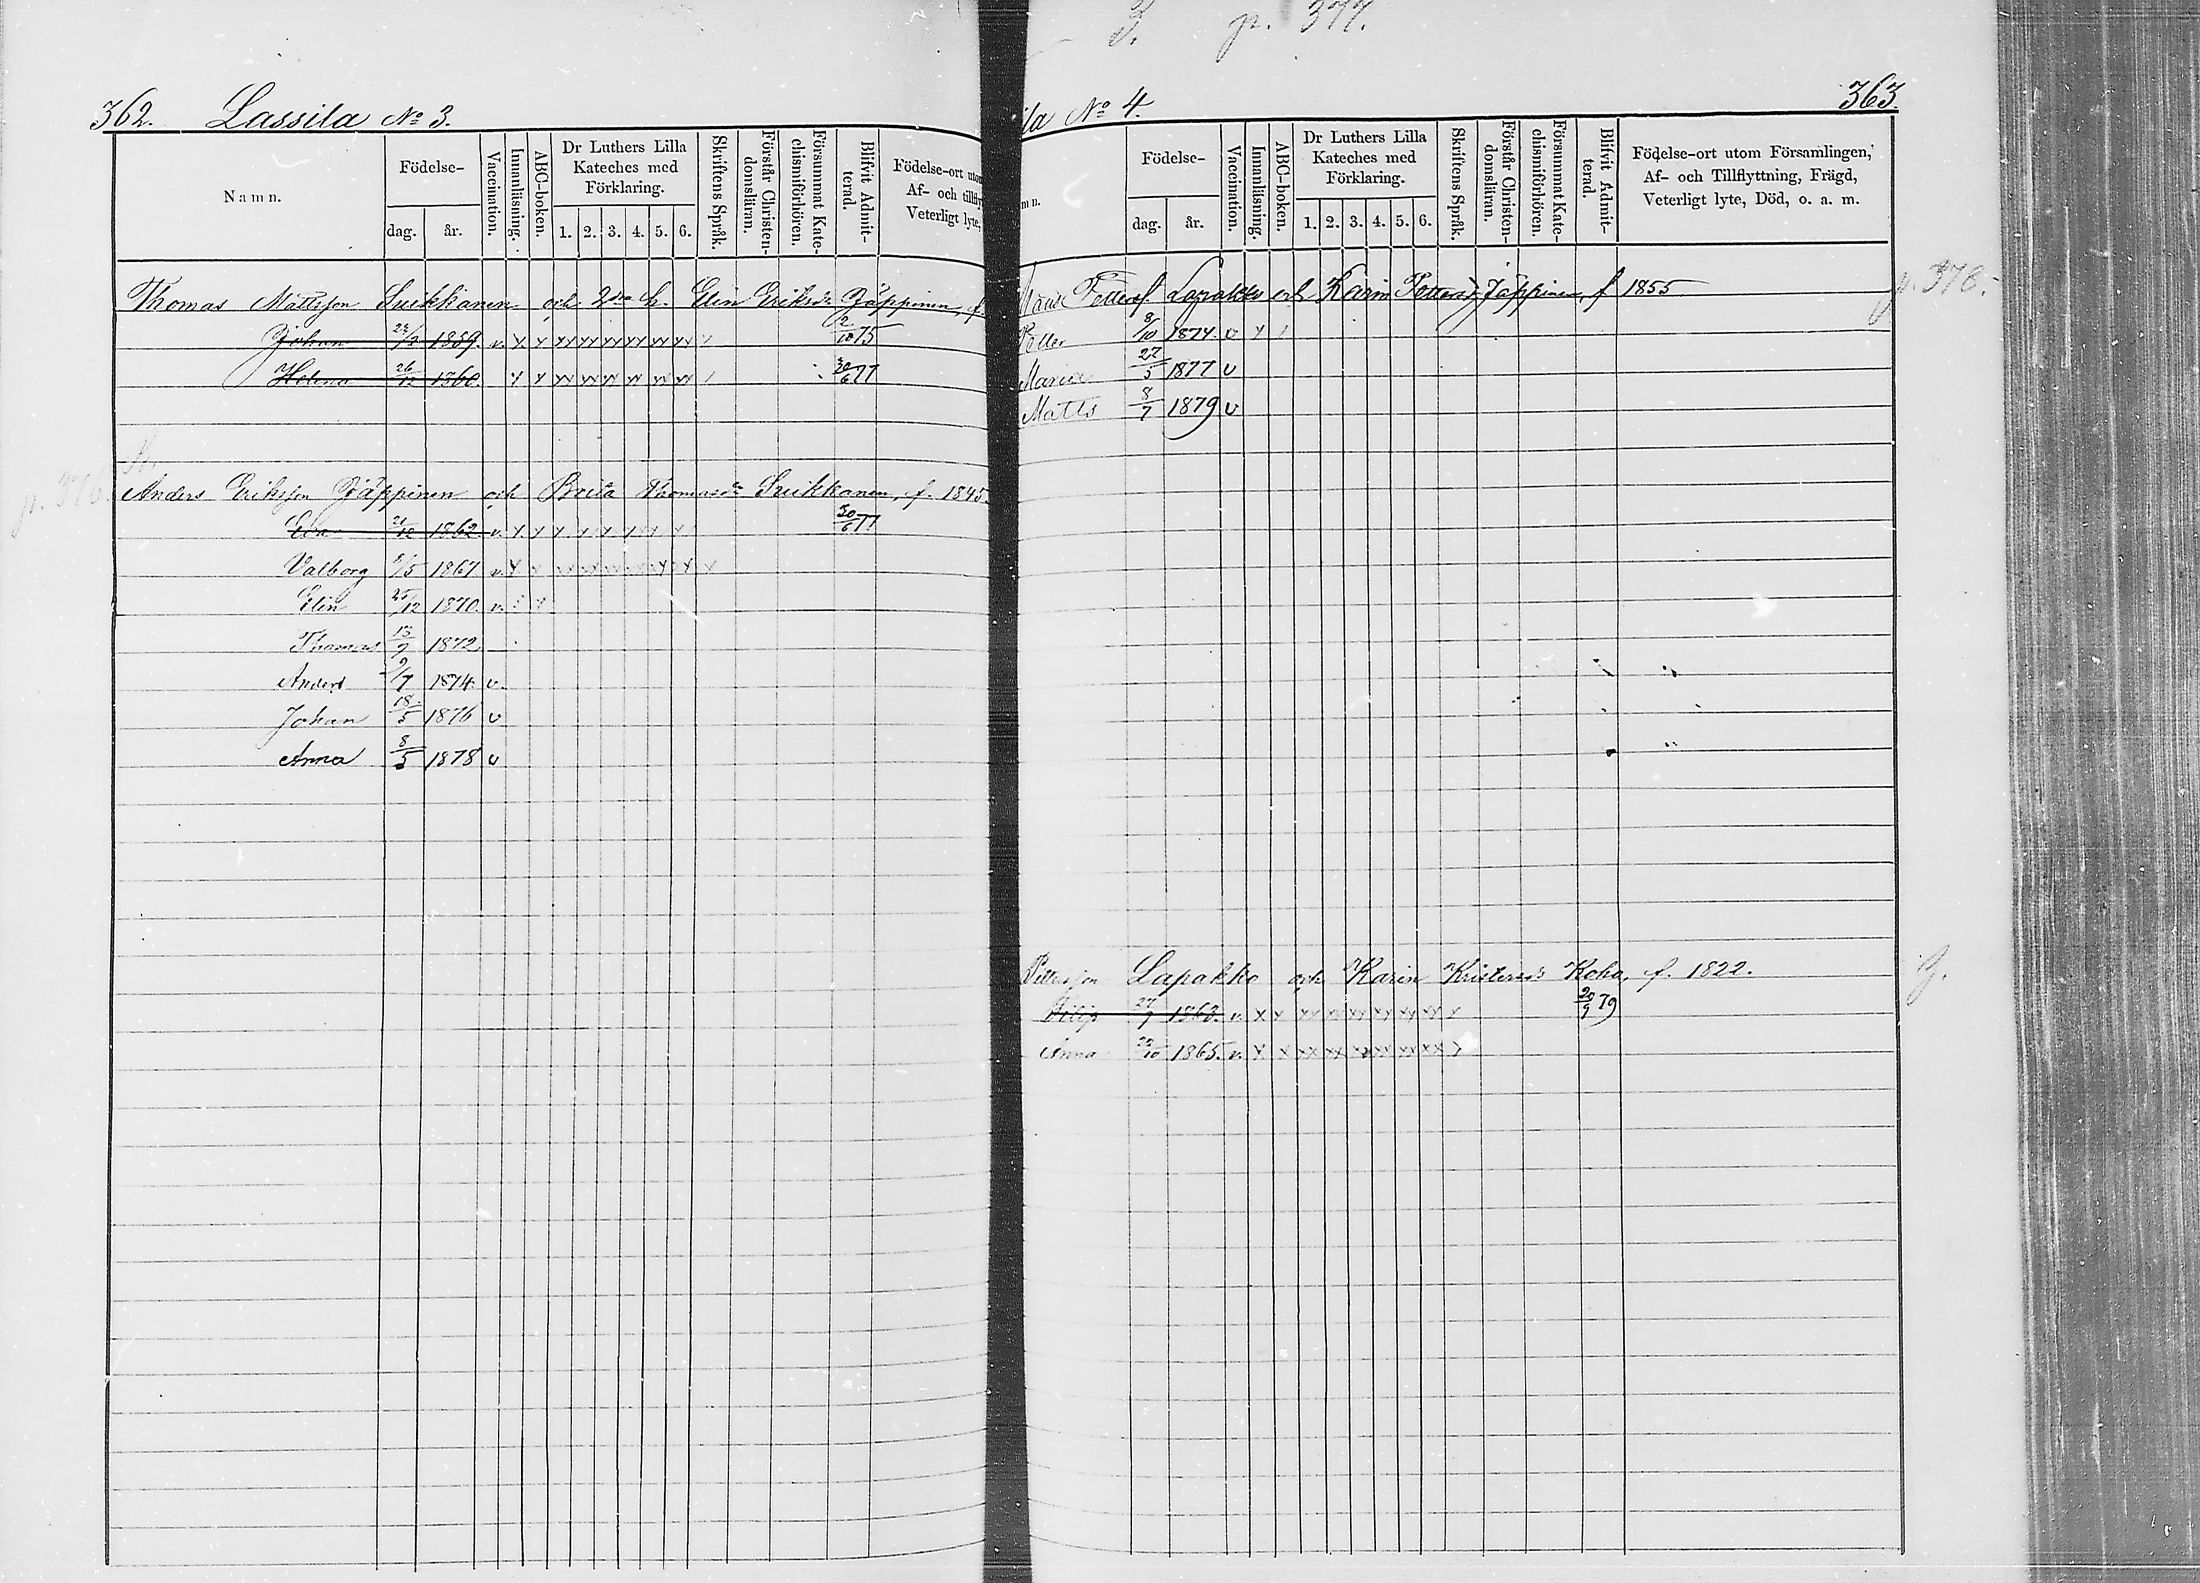 p. 377.
362. Lassila No 3.
Namn.
Födelse-
dag. år.
Vaccination.
Innanläsning.
ABC-boken.
Dr Luthers Lilla Kateches med Förklaring.
1. 2. 3. 4. 5. 6.
Skriftens Språk.
Förstår Christen-domsläran.
Försummat Kate-chismiförhören.
Blifvit Admit-terad.
Födelse-ort utom
Af- och tillfly
Veterligt lyte,
Thomas Mattsson Suikkanen och 2dra h. Elin Eriksdr Jäppinen, f.
Johan 1859. v. 2/10 75
Helena 26/12 1860. 30/6 77
Anders Eriksson Jäppinen och Brita Thomasdr Suikkanen, f. 1845.
Eva 21/12 1862. v. 30/6 77
Valborg 1867 v.
Elin 25/12 1870. v.
Thomas 13/9 1872.
Anders 9/7 1874 v.
Johan 18/5 1876 v
Anna 8/5 1878 v
la No 4. 363.
mn.
Födelse-
dag. år.
Vaccination.
Innanläsning.
ABC-boken.
Dr Luthers Lilla Kateches med Förklaring.
1. 2. 3. 4. 5. 6.
Skriftens Språk.
Förstår Christen-domsläran.
Försummat Kate-chismiförhören.
Blifvit Admit-terad.
Födelse-ort utom Församlingen,
Af- och Tillflyttning, Frägd,
Veterligt lyte, Död, o. a. m.
Petterss. Lapakko och Karin Pettersd. Jäppinen, f 1855 p. 376.
Petter 8/10 1874. v
Maria 27/5 1877 v
Matts 8/7 1879 v
Lapakko och Karin Kristersdr Koho, f. 1822.
Filip 27/7 1863. v. 20/9 79
Anna 1865. v.